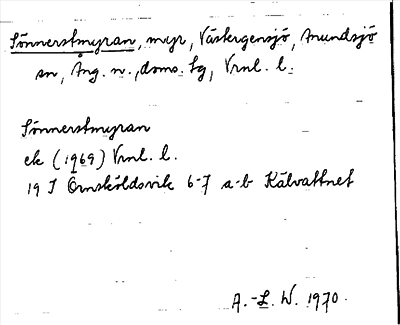 Sönnerstmyran, myr, Västergensjö, Anundsjö
sn, Ång. n., doms. tg, Vrnl. l.
Sönnerstmyran
ek (1969) Vrnl. l.
19 I Örnsköldsvik 6-7 a-b Kälvattnet
A.-L. W. 1970.